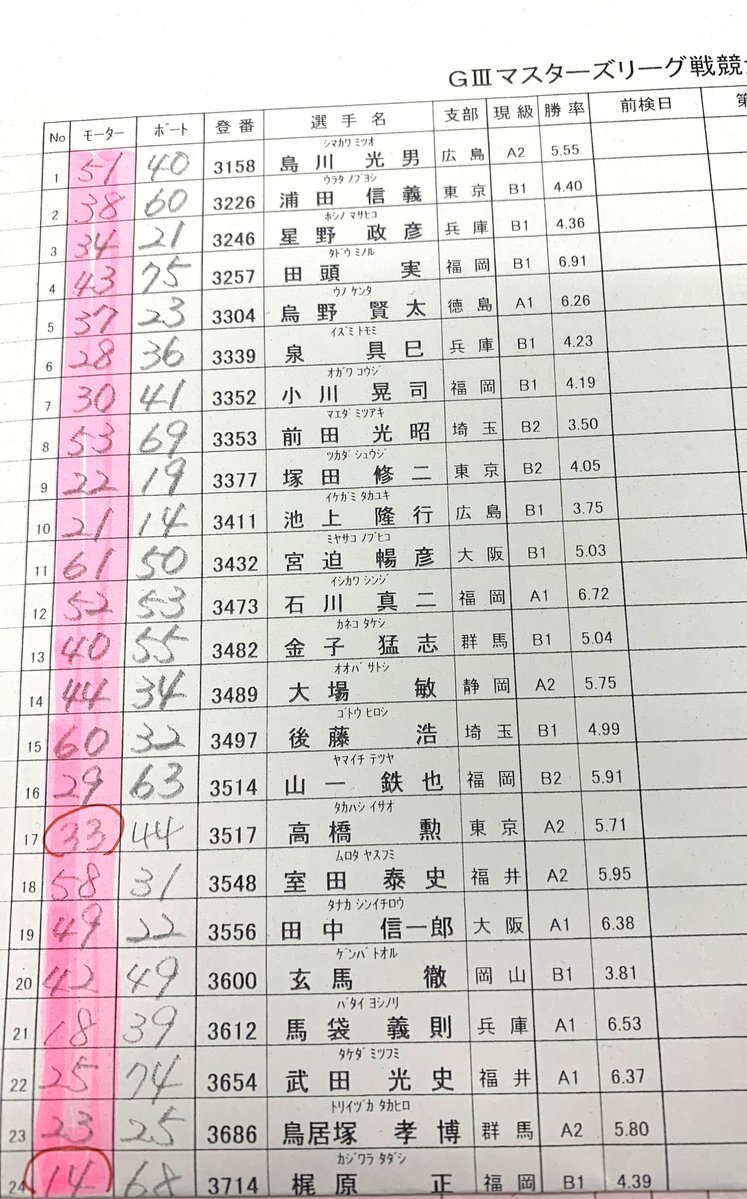 GⅢマスターズリーグ戦競
No モーター ボート 登番 選手名 支部 現級 勝率 前検日 第
シマカワ ミツオ
1 51 40 3158 島川 光男 広島 A2 5.55
ウラタ ノブヨシ
2 38 60 3226 浦田 信義 東京 B1 4.40
ホシノ マサヒコ
3 34 21 3246 星野 政彦 兵庫 B1 4.36
タドウ ミノル
4 43 75 3257 田頭 実 福岡 B1 6.91
ウノ ケンタ
5 37 23 3304 烏野 賢太 徳島 A1 6.26
イズミ トモミ
6 28 36 3339 泉 具巳 兵庫 B1 4.23
オガワ コウジ
7 30 41 3352 小川 晃司 福岡 B1 4.19
マエダ ミツアキ
8 53 69 3353 前田 光昭 埼玉 B2 3.50
ツカダ シュウジ
9 22 19 3377 塚田 修二 東京 B2 4.05
イケガミ タカユキ
10 21 14 3411 池上 隆行 広島 B1 3.75
ミヤサコ ノブヒコ
11 61 50 3432 宮迫 暢彦 大阪 B1 5.03
イシカワ シンジ
12 52 53 3473 石川 真二 福岡 A1 6.72
カネコ タケシ
13 40 55 3482 金子 猛志 群馬 B1 5.04
オオバ サトシ
14 44 34 3489 大場 敏 静岡 A2 5.75
ゴトウ ヒロシ
15 60 32 3497 後藤 浩 埼玉 B1 4.99
ヤマイチ テツヤ
16 29 63 3514 山一 鉄也 福岡 B2 5.91
タカハシ イサオ
17 33 44 3517 高橋 勲 東京 A2 5.71
ムロタ ヤスフミ
18 58 31 3548 室田 泰史 福井 A2 5.95
タナカ シンイチロウ
19 49 22 3556 田中 信一郎 大阪 A1 6.38
ゲンバ トオル
20 42 49 3600 玄馬 徹 岡山 B1 3.81
バタイ ヨシノリ
21 18 39 3612 馬袋 義則 兵庫 A1 6.53
タケダ ミツフミ
22 25 74 3654 武田 光史 福井 A1 6.37
トリイヅカ タカヒロ
23 23 25 3686 鳥居塚 孝博 群馬 A2 5.80
カジワラ タダシ
24 14 68 3714 梶原 正 福岡 B1 4.39